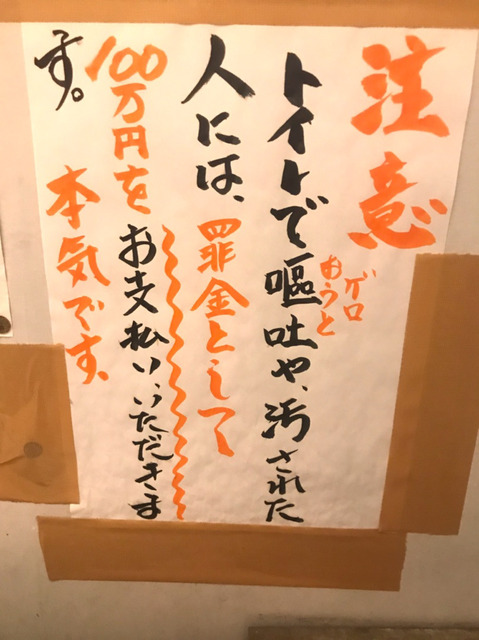 注意
トイレで嘔吐や、汚された
おうと
ゲロ
人には、罪金として
100万円をお支払いいただきま
す。 本気です、